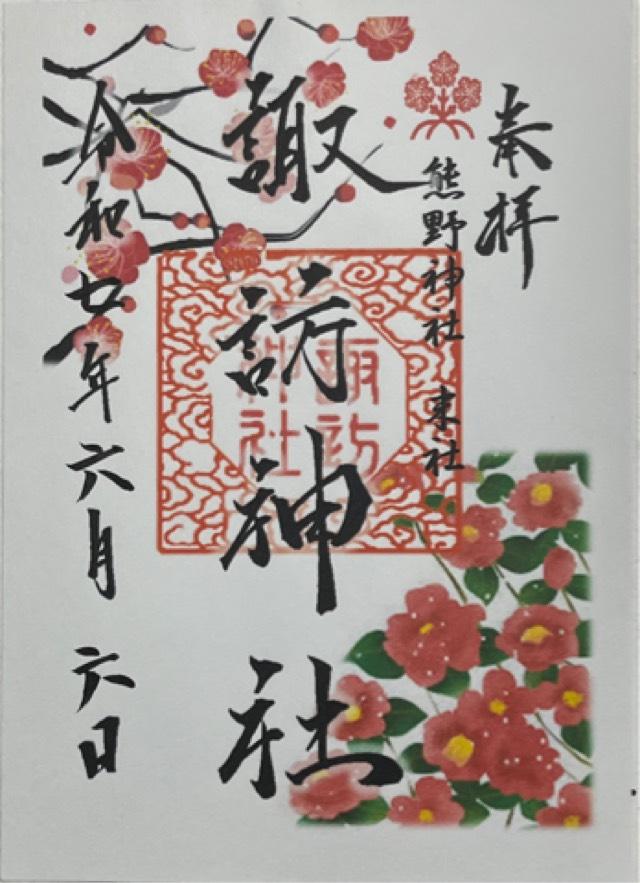 奉拝
熊野神社 末社
諏訪神社
諏訪
神社
令和七年六月六日